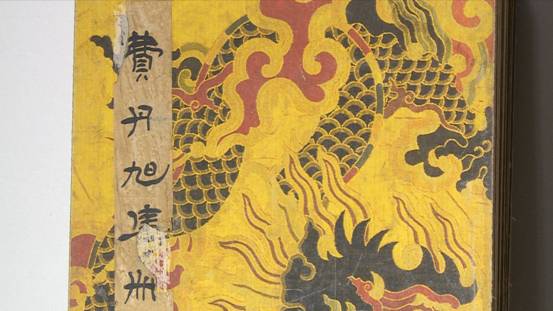 費丹旭集冊